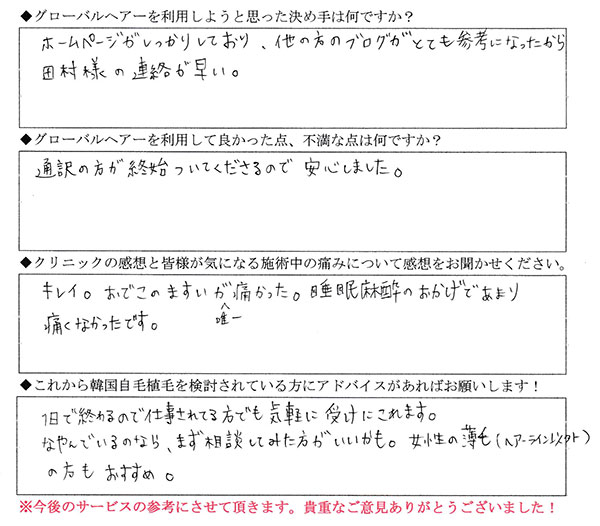 ◆グローバルヘアーを利用しようと思った決め手は何ですか?
ホームページがしっかりしており、他の方のブログがとても参考になったから
田村様の連絡が早い。
◆グローバルヘアーを利用して良かった点、不満な点は何ですか?
通訳の方が終始ついてくださるので安心しました。
◆クリニックの感想と皆様が気になる施術中の痛みについて感想をお聞かせください。
キレイ。おでこのますいが痛かった。睡眠麻酔のおかげであまり
唯一
痛くなかったです。
◆これから韓国自毛植毛を検討されている方にアドバイスがあればお願いします!
1日で終わるので仕事されてる方でも気軽に受けにこれます。
なやんでいるのなら、まず相談してみた方がいいかも。女性の薄毛(ヘアーライン
の方もおすすめ。
※今後のサービスの参考にさせて頂きます。貴重なご意見ありがとうございました!